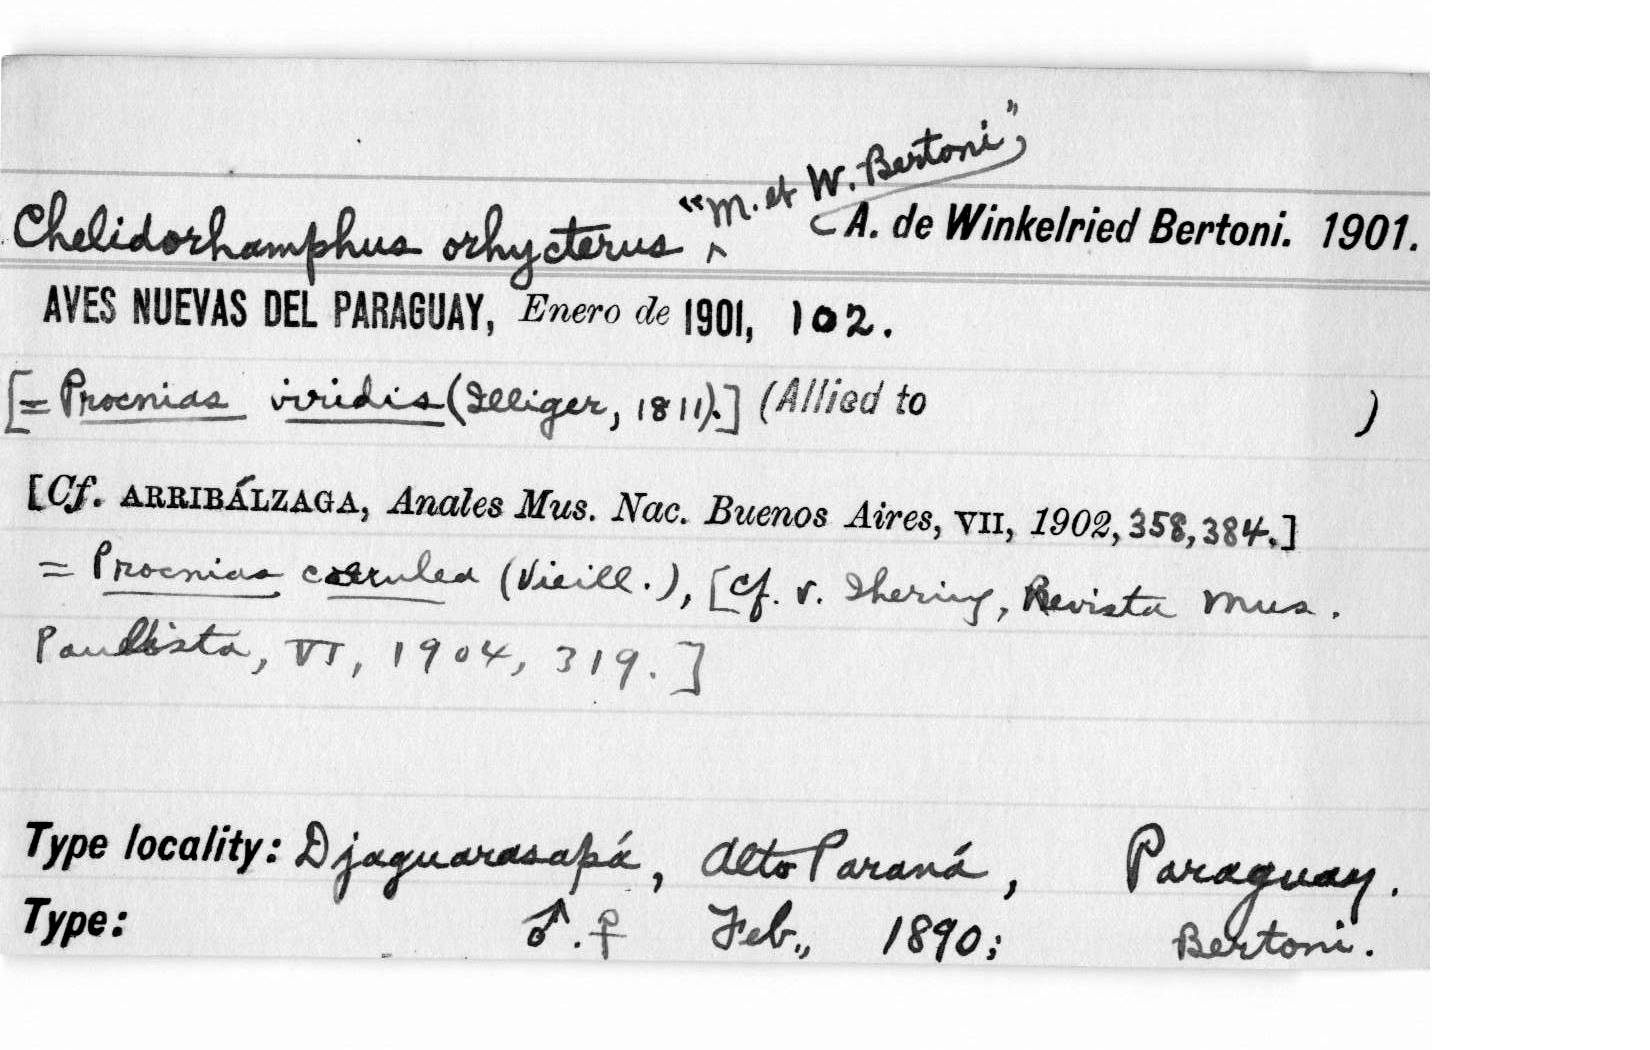 "M. et W. Bertoni",
Chelidorhamphus orhycterus A. de Winkelried Bertoni. 1901.
AVES NUEVAS DEL PARAGUAY, Enero de 1901, 102.
[= Procnias viridis (Illiger, 1811).] (Allied to )
[Cf. ARRIBÁLZAGA, Anales Mus. Nac. Buenos Aires, VII, 1902, 358, 384.]
= Procnias coerulea (Vieill.), [Cf. v. Ihering, Revista Mus.
Paulista, VI, 1904, 319.]
Type locality: Djaguarasapá, Alto Paraná, Paraguay.
Type: ♂. ♀ Feb., 1890; Bertoni.